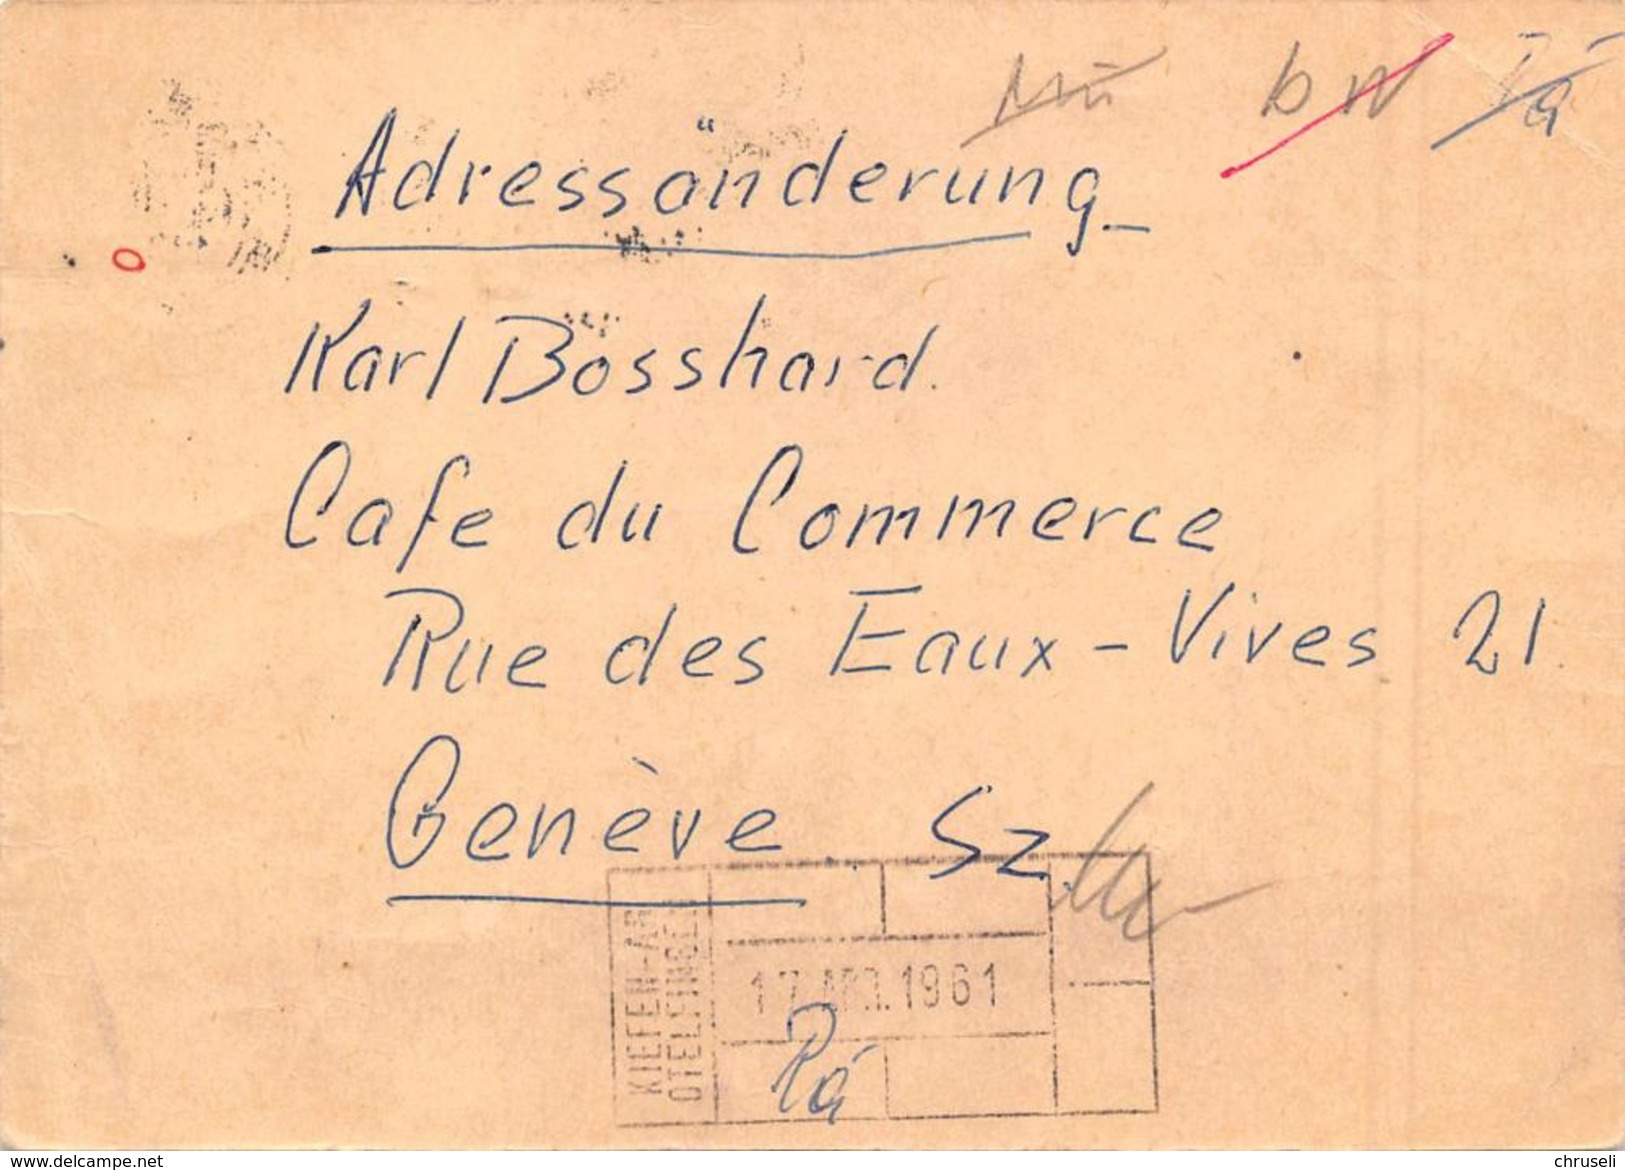 bw
Adressänderung
Karl Bosshard.
Cafe du Commerce
Rue des Eaux-Vives 21.
Genève Sz.
KIEFER-AG
OTELFINGEN
17 APR. 1961
Rá
www.delcampe.net
chruseli